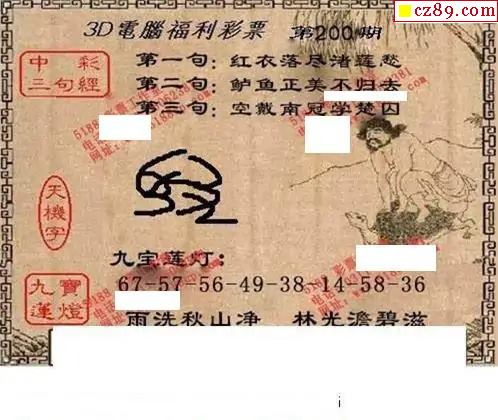 cz89.com
3D電腦福利彩票 第200期
中彩三句經
第一句：红衣落尽渚莲愁
第二句：鲈鱼正美不归去
第三句：空戴南冠学楚囚
天機字
九宝莲灯：
九寶蓮燈
67-57-56-49-38-14-58-36
雨洗秋山净 林光澹碧滋
i